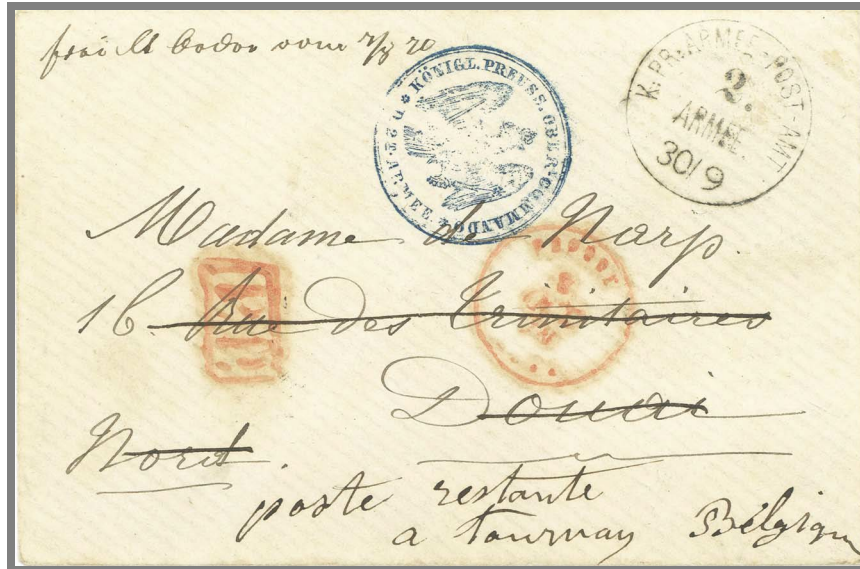 vom 7/8 70
KÖNIGL. PREUSS. OBER-COMMANDO * D. 2T. ARMEE *
K. PR. ARMEE-POST-AMT
2.
ARMEE
30/9
Madame de Narp.
16. Rue des Trinitaires
Douai
Nord.
poste restante
a Tournay Bélgique